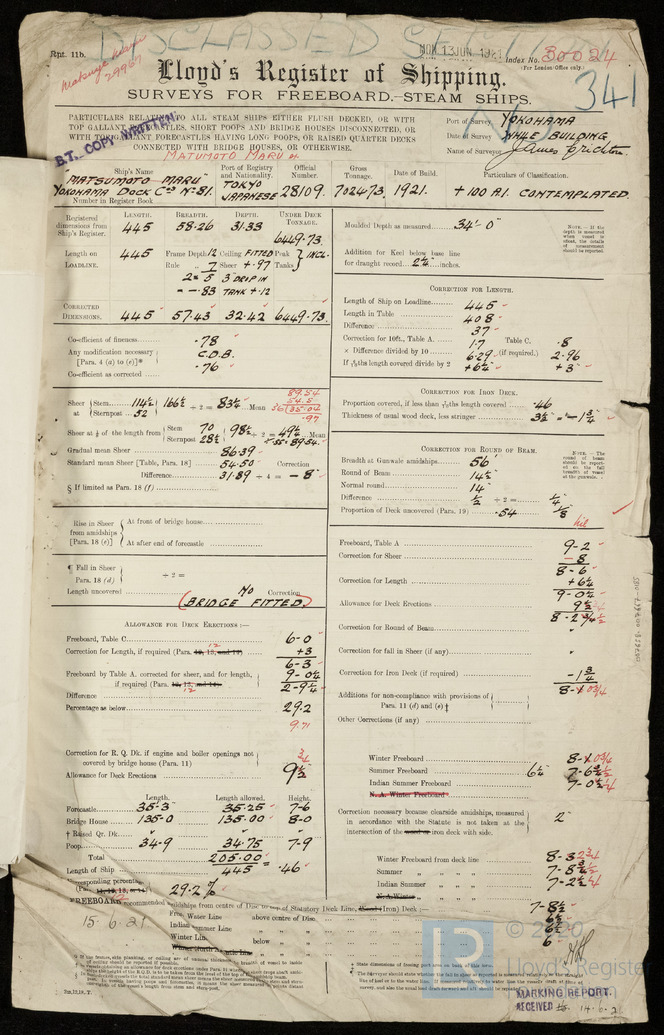 DISCLASSED
Rpt. 11b.
MON. 13 JUN 1921
Index No. 30024
(For London Office only.)
Matsuye Maru
29961
341
Lloyd's Register of Shipping.
SURVEYS FOR FREEBOARD.—STEAM SHIPS.
PARTICULARS RELATING TO ALL STEAM SHIPS EITHER FLUSH DECKED, OR WITH
TOP GALLANT FORECASTLES, SHORT POOPS AND BRIDGE HOUSES DISCONNECTED, OR
WITH TOP GALLANT FORECASTLES HAVING LONG POOPS, OR RAISED QUARTER DECKS
CONNECTED WITH BRIDGE HOUSES, OR OTHERWISE.
B.T. COPY WRITTEN
Port of Survey YOKOHAMA
Date of Survey WHILE BUILDING
Name of Surveyor James Crichton
MATUMOTO MARU
Ship's Name
Port of Registry and Nationality.
Official Number.
Gross Tonnage.
Date of Build.
Particulars of Classification.
"MATSUMOTO MARU"
YOKOHAMA DOCK Co's No 81.
TOKYO
JAPANESE
28109.
7024.73
1921.
+ 100 A.1. CONTEMPLATED.
Number in Register Book
Registered dimensions from Ship's Register.
LENGTH. BREADTH. DEPTH. UNDER DECK TONNAGE.
445 58.26 31.33 6449.73
Length on LOADLINE. 445
Frame Depth 12 Ceiling FITTED Peak Tanks INCL.
Rule 7 Sheer + .97
2 = 5 3" DROP IN
= - .83 TANK + .12
CORRECTED DIMENSIONS. 445 57.43 32.42 6449.73
Co-efficient of fineness .78
Any modification necessary [Para. 4 (a) to (e)]* C.D.B.
Co-efficient as corrected .76
Sheer at Stem 114½ Sternpost 52 166½ ÷ 2 = 83¼ Mean
Sheer at ⅛ of the length from Stem 70 Sternpost 28½ 98½ ÷ 2 = 49¼ Mean
Gradual mean Sheer 86.39
Standard mean Sheer [Table, Para. 18] 54.50 Correction
Difference 31.89 ÷ 4 = - 8
§ If limited as Para. 18 (f)
Rise in Sheer from amidships [Para. 18 (e)]
At front of bridge house
At after end of forecastle
¶ Fall in Sheer Para. 18 (d) ÷ 2 =
Length uncovered No Correction
(BRIDGE FITTED)
ALLOWANCE FOR DECK ERECTIONS :—
Freeboard, Table C 6-0
Correction for Length, if required (Para. 12) +3
6-3
Freeboard by Table A. corrected for sheer, and for length, if required (Para. 12) 9-0¼
Difference 2-9¼
Percentage as below 29.2
9.71
Correction for R. Q. Dk. if engine and boiler openings not covered by bridge house (Para. 11)
¾
Allowance for Deck Erections 9½
Length. Length allowed. Height.
Forecastle 35-3 35.25 7-6
Bridge House 135-0 135.00 8-0
† Raised Qr. Dk.
Poop 34-9 34.75 7-9
Total 205.00
Length of Ship 445 = .46
Corresponding percentage 29.2 %
Moulded Depth as measured 34'- 0"
Addition for Keel below base line for draught record 2¼ inches.
NOTE. — If the depth is measured when vessel is afloat, the details of measurement should be reported.
CORRECTION FOR LENGTH.
Length of Ship on Loadline 445
Length in Table 408
Difference 37
Correction for 10ft., Table A. 1.7 Table C. .8
× Difference divided by 10 6.29 (if required.) 2.96
If ⁶⁄₁₀ths length covered divide by 2 +6¼ +3
CORRECTION FOR IRON DECK.
Proportion covered, if less than ⁷⁄₁₀ths length covered .46
Thickness of usual wood deck, less stringer 3½ = -1¾
CORRECTION FOR ROUND OF BEAM.
Breadth at Gunwale amidships 56'
Round of Beam 14½
Normal round 14
Difference ½ ÷ 2 = ¼
Proportion of Deck uncovered (Para. 19) .54 ⅛
nil
NOTE. — The round of beam should be reported on the full breadth of vessel at the gunwale.
Freeboard, Table A 9-2
Correction for Sheer -8
8-6
Correction for Length +6¼
9-0¼
Allowance for Deck Erections 9½
8-2¾
Correction for Round of Beam
Correction for fall in Sheer (if any)
Correction for Iron Deck (if required) -1¾
Additions for non-compliance with provisions of Para. 11 (d) and (e) †
Other Corrections (if any)
Winter Freeboard
Summer Freeboard 6¼
Indian Summer Freeboard
N. A. Winter Freeboard
Correction necessary because clearside amidships, measured in accordance with the Statute is not taken at the intersection of the wood or iron deck with side. 2"
Winter Freeboard from deck line
Summer " " "
Indian Summer " " "
N.A. Winter
FREEBOARD recommended amidships from centre of Disc to top of Statutory Deck Line, (Iron) Deck :— 7-8½
Fresh Water Line above centre of Disc.
Indian Summer Line " "
Winter Line below "
15.6.21
© 2020
MARKING REPORT.
RECEIVED 14.6.21